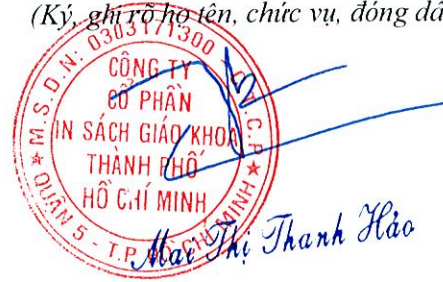 (Ký, ghi rõ họ tên, chức vụ, đóng dấ
M.S.D.N: 0303171300 C.T.C.P
CÔNG TY
CỔ PHẦN
IN SÁCH GIÁO KHOA
THÀNH PHỐ
HỒ CHÍ MINH
QUẬN 5 - T.P HỒ CHÍ MINH
Mai Thị Thanh Hảo